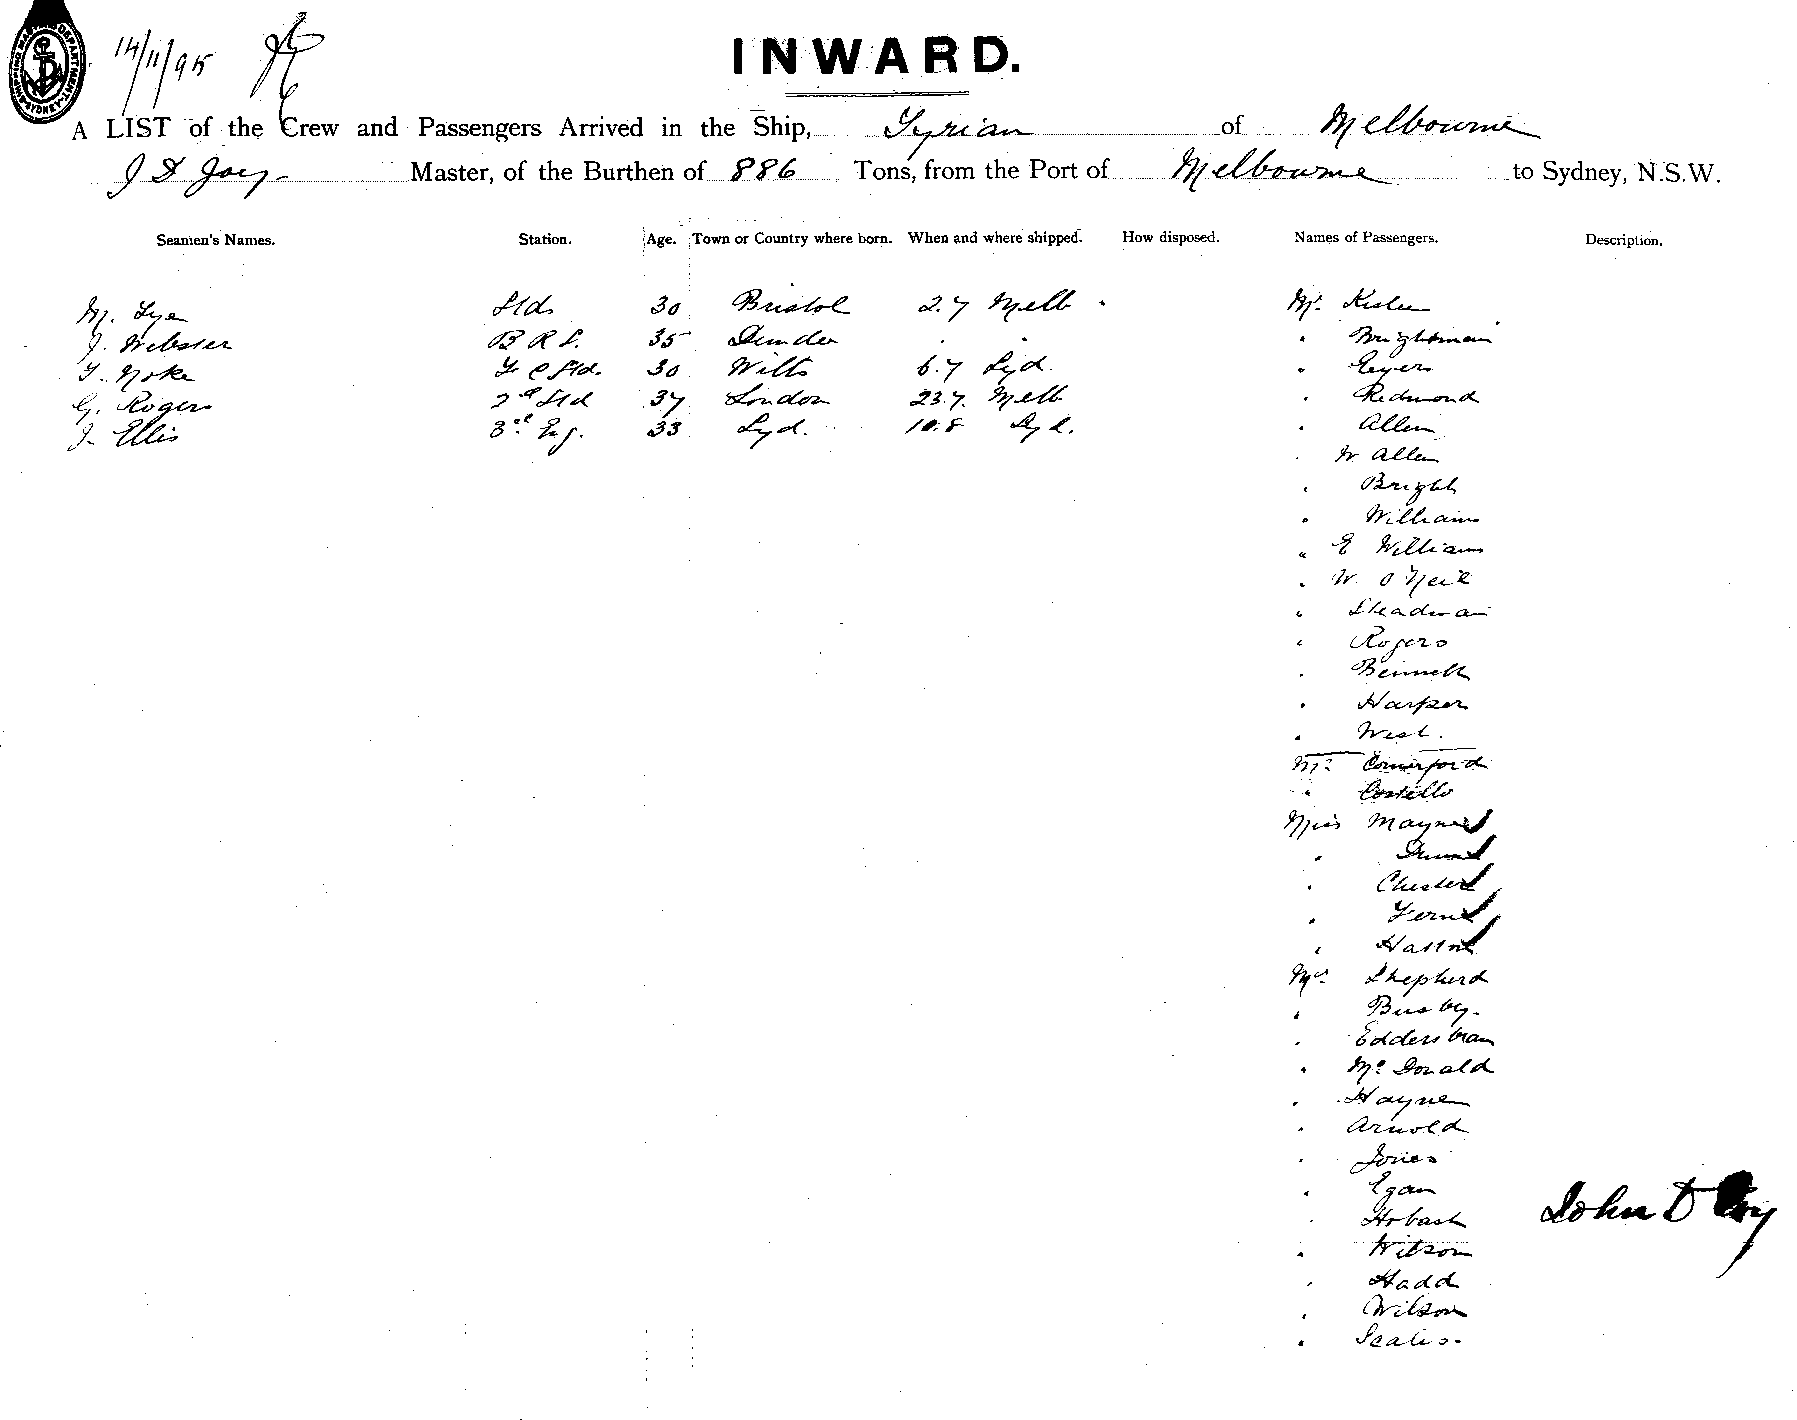 14/11/95
INWARD.
A LIST of the Crew and Passengers Arrived in the Ship, Syrian of Melbourne
Master, of the Burthen of 886 Tons, from the Port of Melbourne to Sydney, N.S.W.
Seamen's Names. Station. Age. Town or Country where born. When and where shipped. How disposed. Names of Passengers. Description.
M. Lye Std 30 Bristol 2.7 Melb
J. Webster B R S. 35 Dundee " "
Noke F C Std. 30 Wilts 6.7 Syd.
G. Rogers 2nd Std 37 London 23.7. Melb
J. Ellis 3rd Eng. 33 Syd. 10.8 Syd.
Mr
" Brightman
" Eyers
" Redmond
" Allen
" W Allen
" Bright
" Williams
" E Williams
" W. O'Neil
" Steadman
" Rogers
" Bennett
" Harper
" West.
Mr Comerford
" Costello
Miss Mayne
" Dunn
" Chester
" Ferne
"
Mrs Shepherd
" Busby.
"
" McDonald
" Hayne
" Arnold
" Jones
" Egan
" Hobash
" Wilson
" Hadd
" Wilson
" Scales.
John D